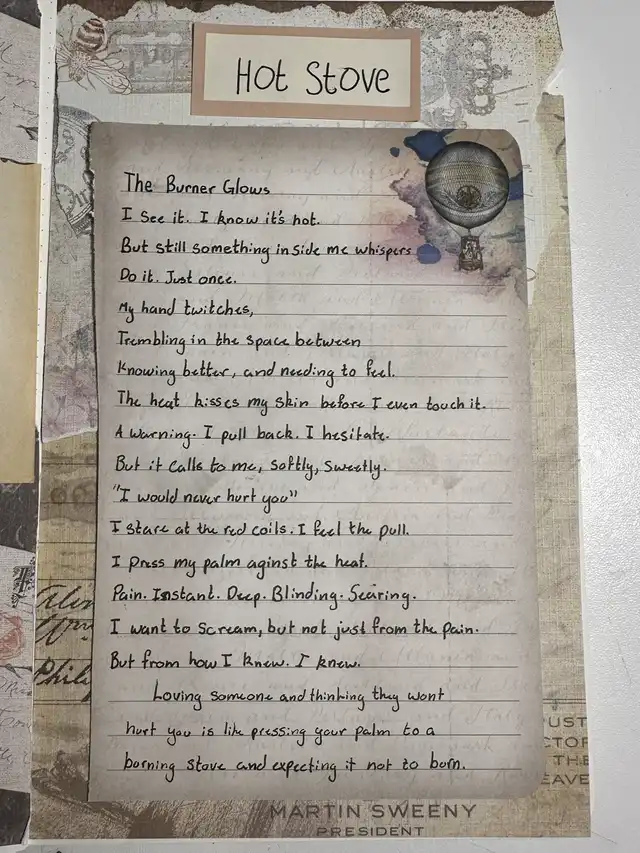 Hot Stove
The Burner Glows
I see it. I know it's hot.
But still something inside me whispers
Do it. Just once.
My hand twitches,
Trembling in the space between
Knowing better, and needing to feel.
The heat kisses my skin before I even touch it.
A warning. I pull back. I hesitate.
But it calls to me, softly, sweetly.
"I would never hurt you"
I stare at the red coils. I feel the pull.
I press my palm aginst the heat.
Pain. Instant. Deep. Blinding. Searing.
I want to scream, but not just from the pain.
But from how I knew. I knew.
Loving someone and thinking they wont
hurt you is like pressing your palm to a
borning stove and expecting it not to born.
Philip
UST
CTOR
THE
EAVE
MARTIN SWEENY
PRESIDENT